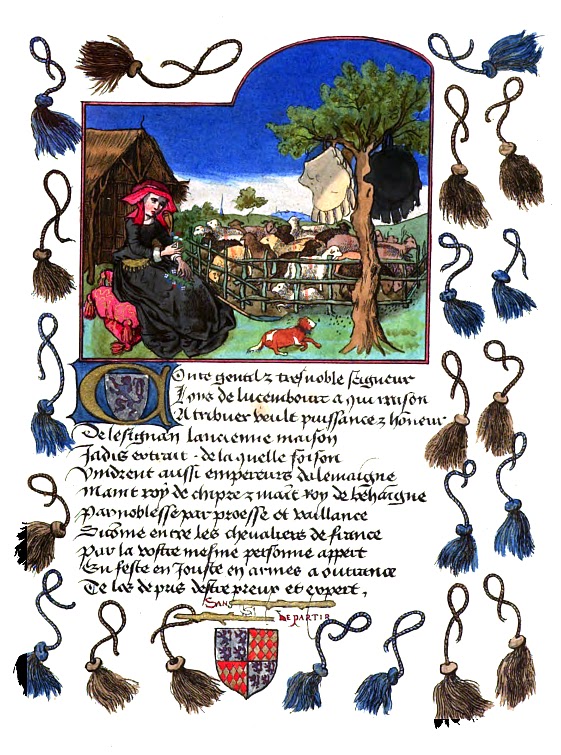 Conte gentil & tresnoble seigneur
Loys de lucembourc a qui raison
Attribuer voult puissance & honneur
De lesignan lancienne maison
Jadis extrait . de la quelle foison
Vindrent aussi empereurs dalemaigne
Maint roy de chipre & maint roy de behaigne
Par noblesse par proesse et vaillance
Si come entre les chevaliers de france
Par la vostre mesme personne appert
En feste en Jouste en armes a outrance
De los de pris destre preux et expert,
SANS
DEPARTIR